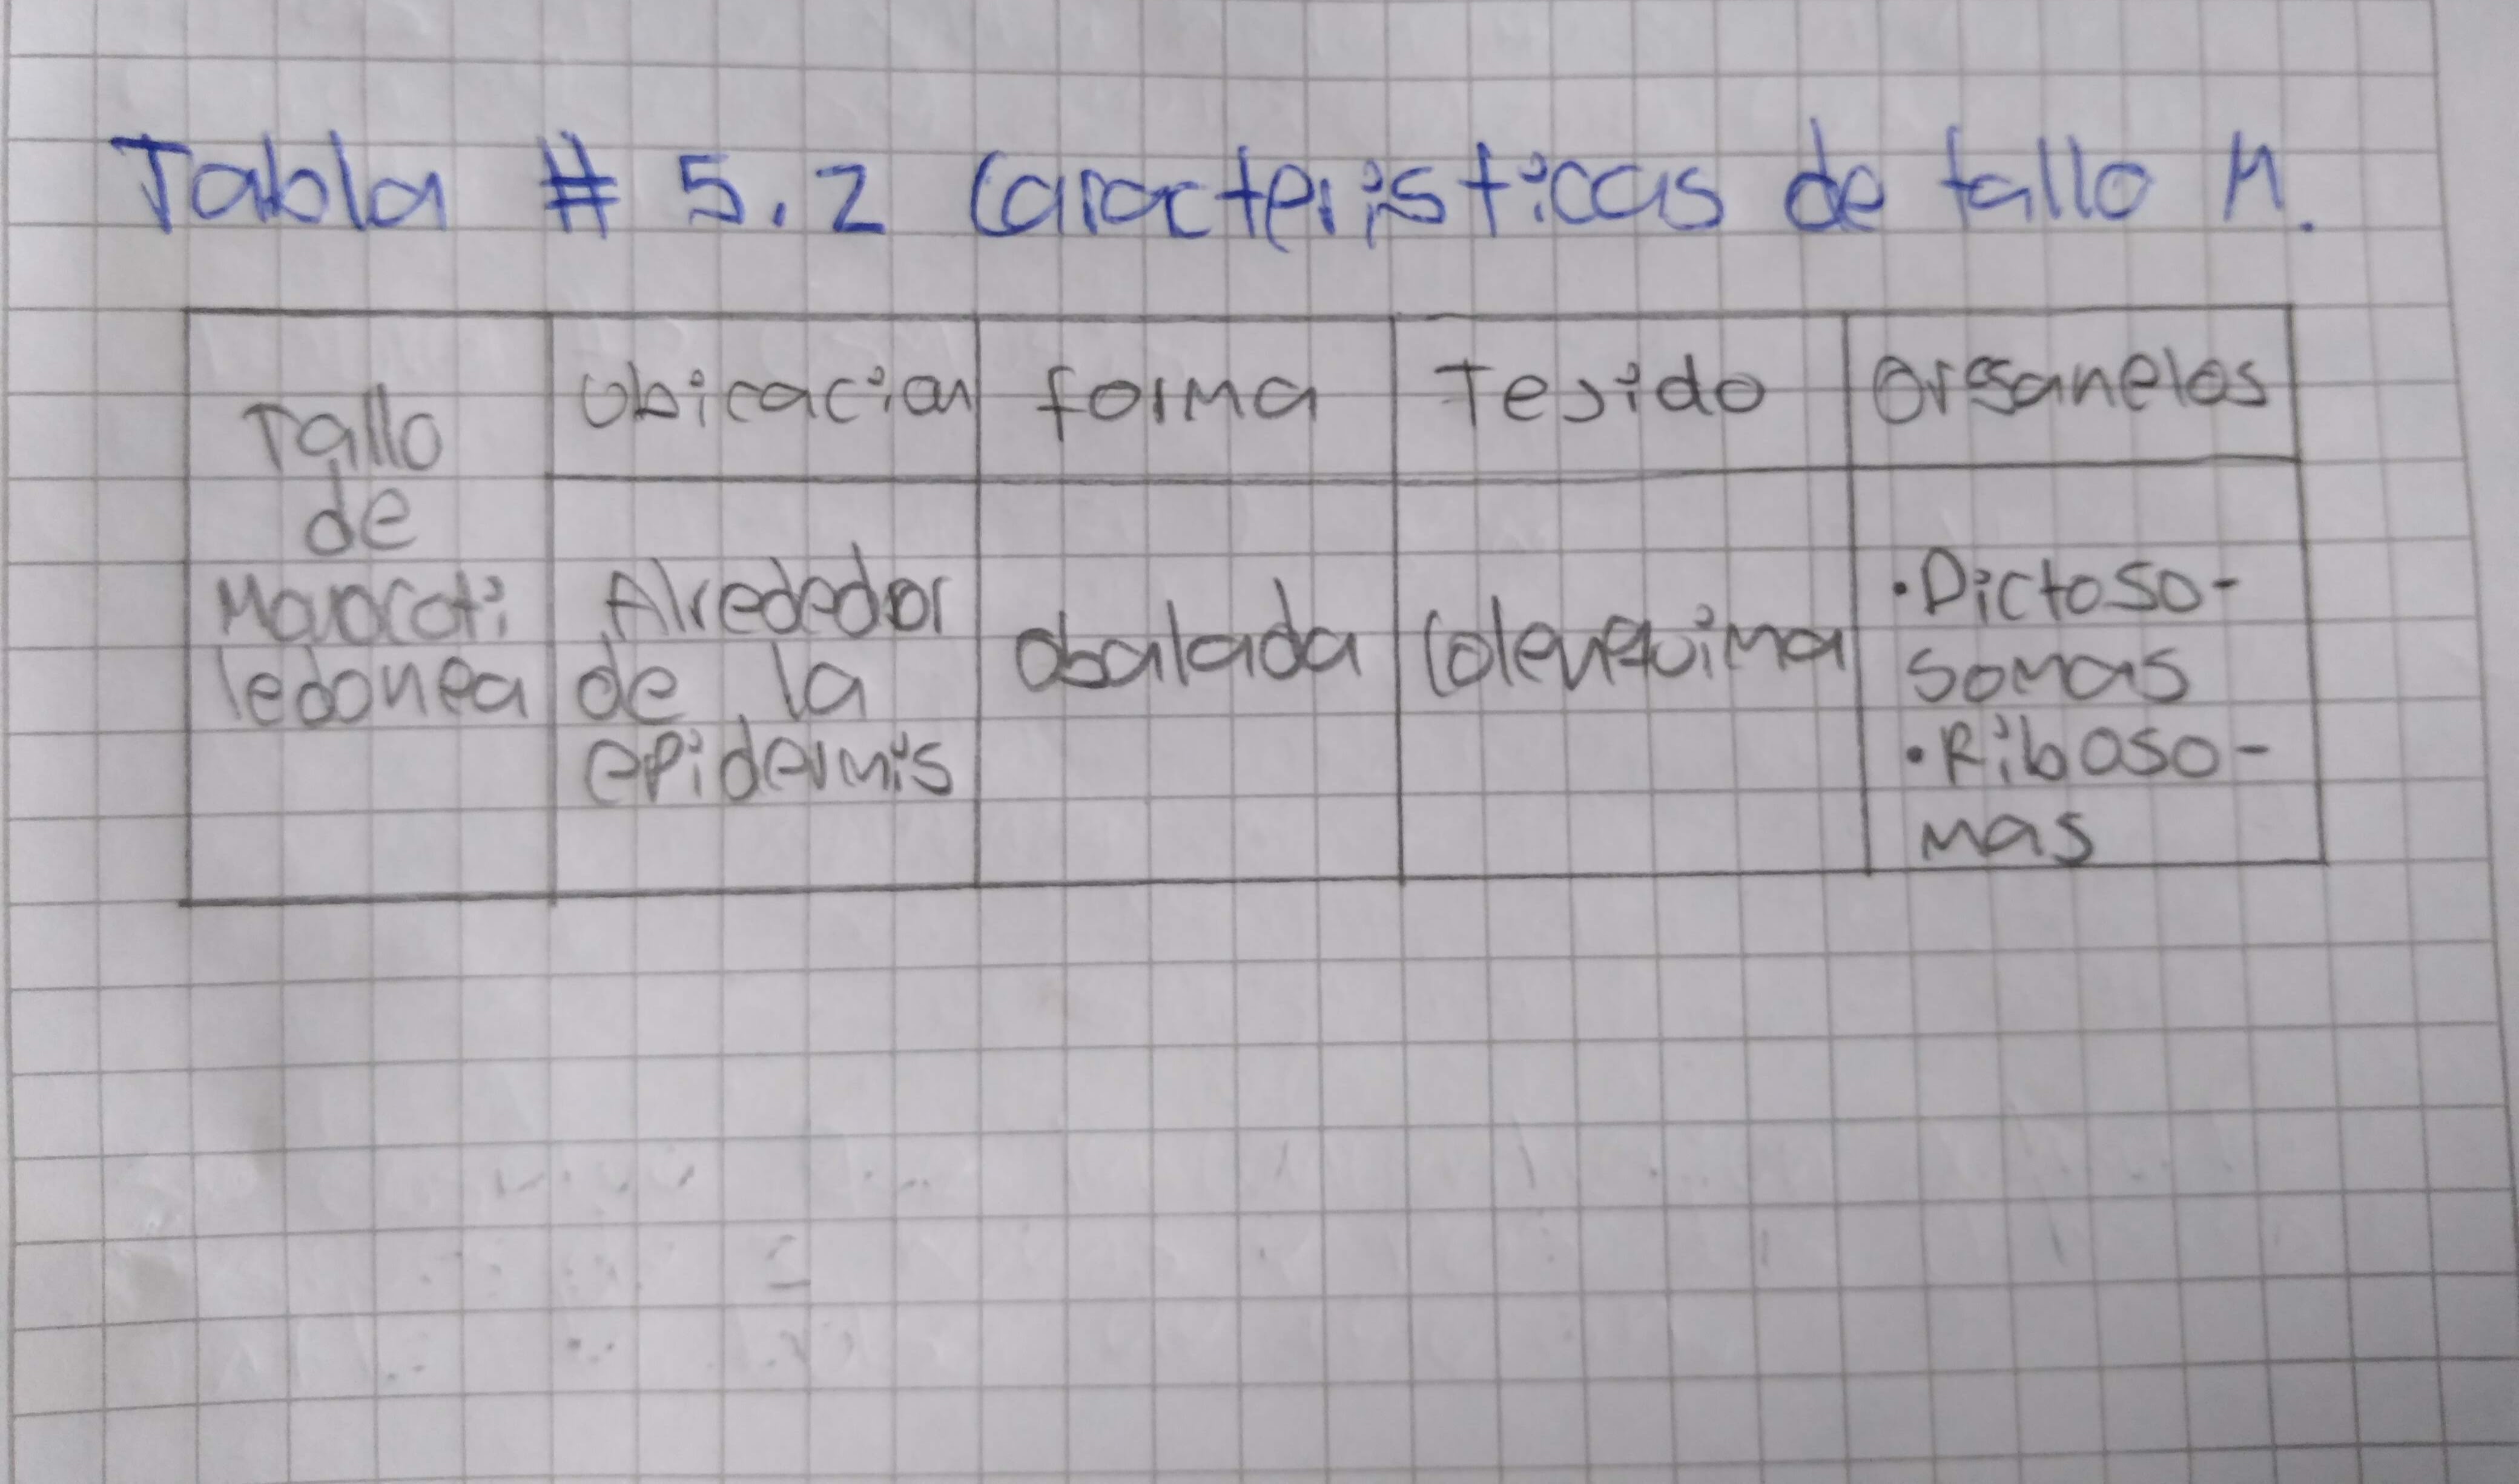 Tabla # 5.2 Caracteristicas de tallo M.
Tallo
de
Monocoti
ledonea
Ubicacion
forma
Tejido
Organelos
Alrededor
de la
epidermis
obalada
Colenquima
•Dictoso-
somas
•Riboso-
mas